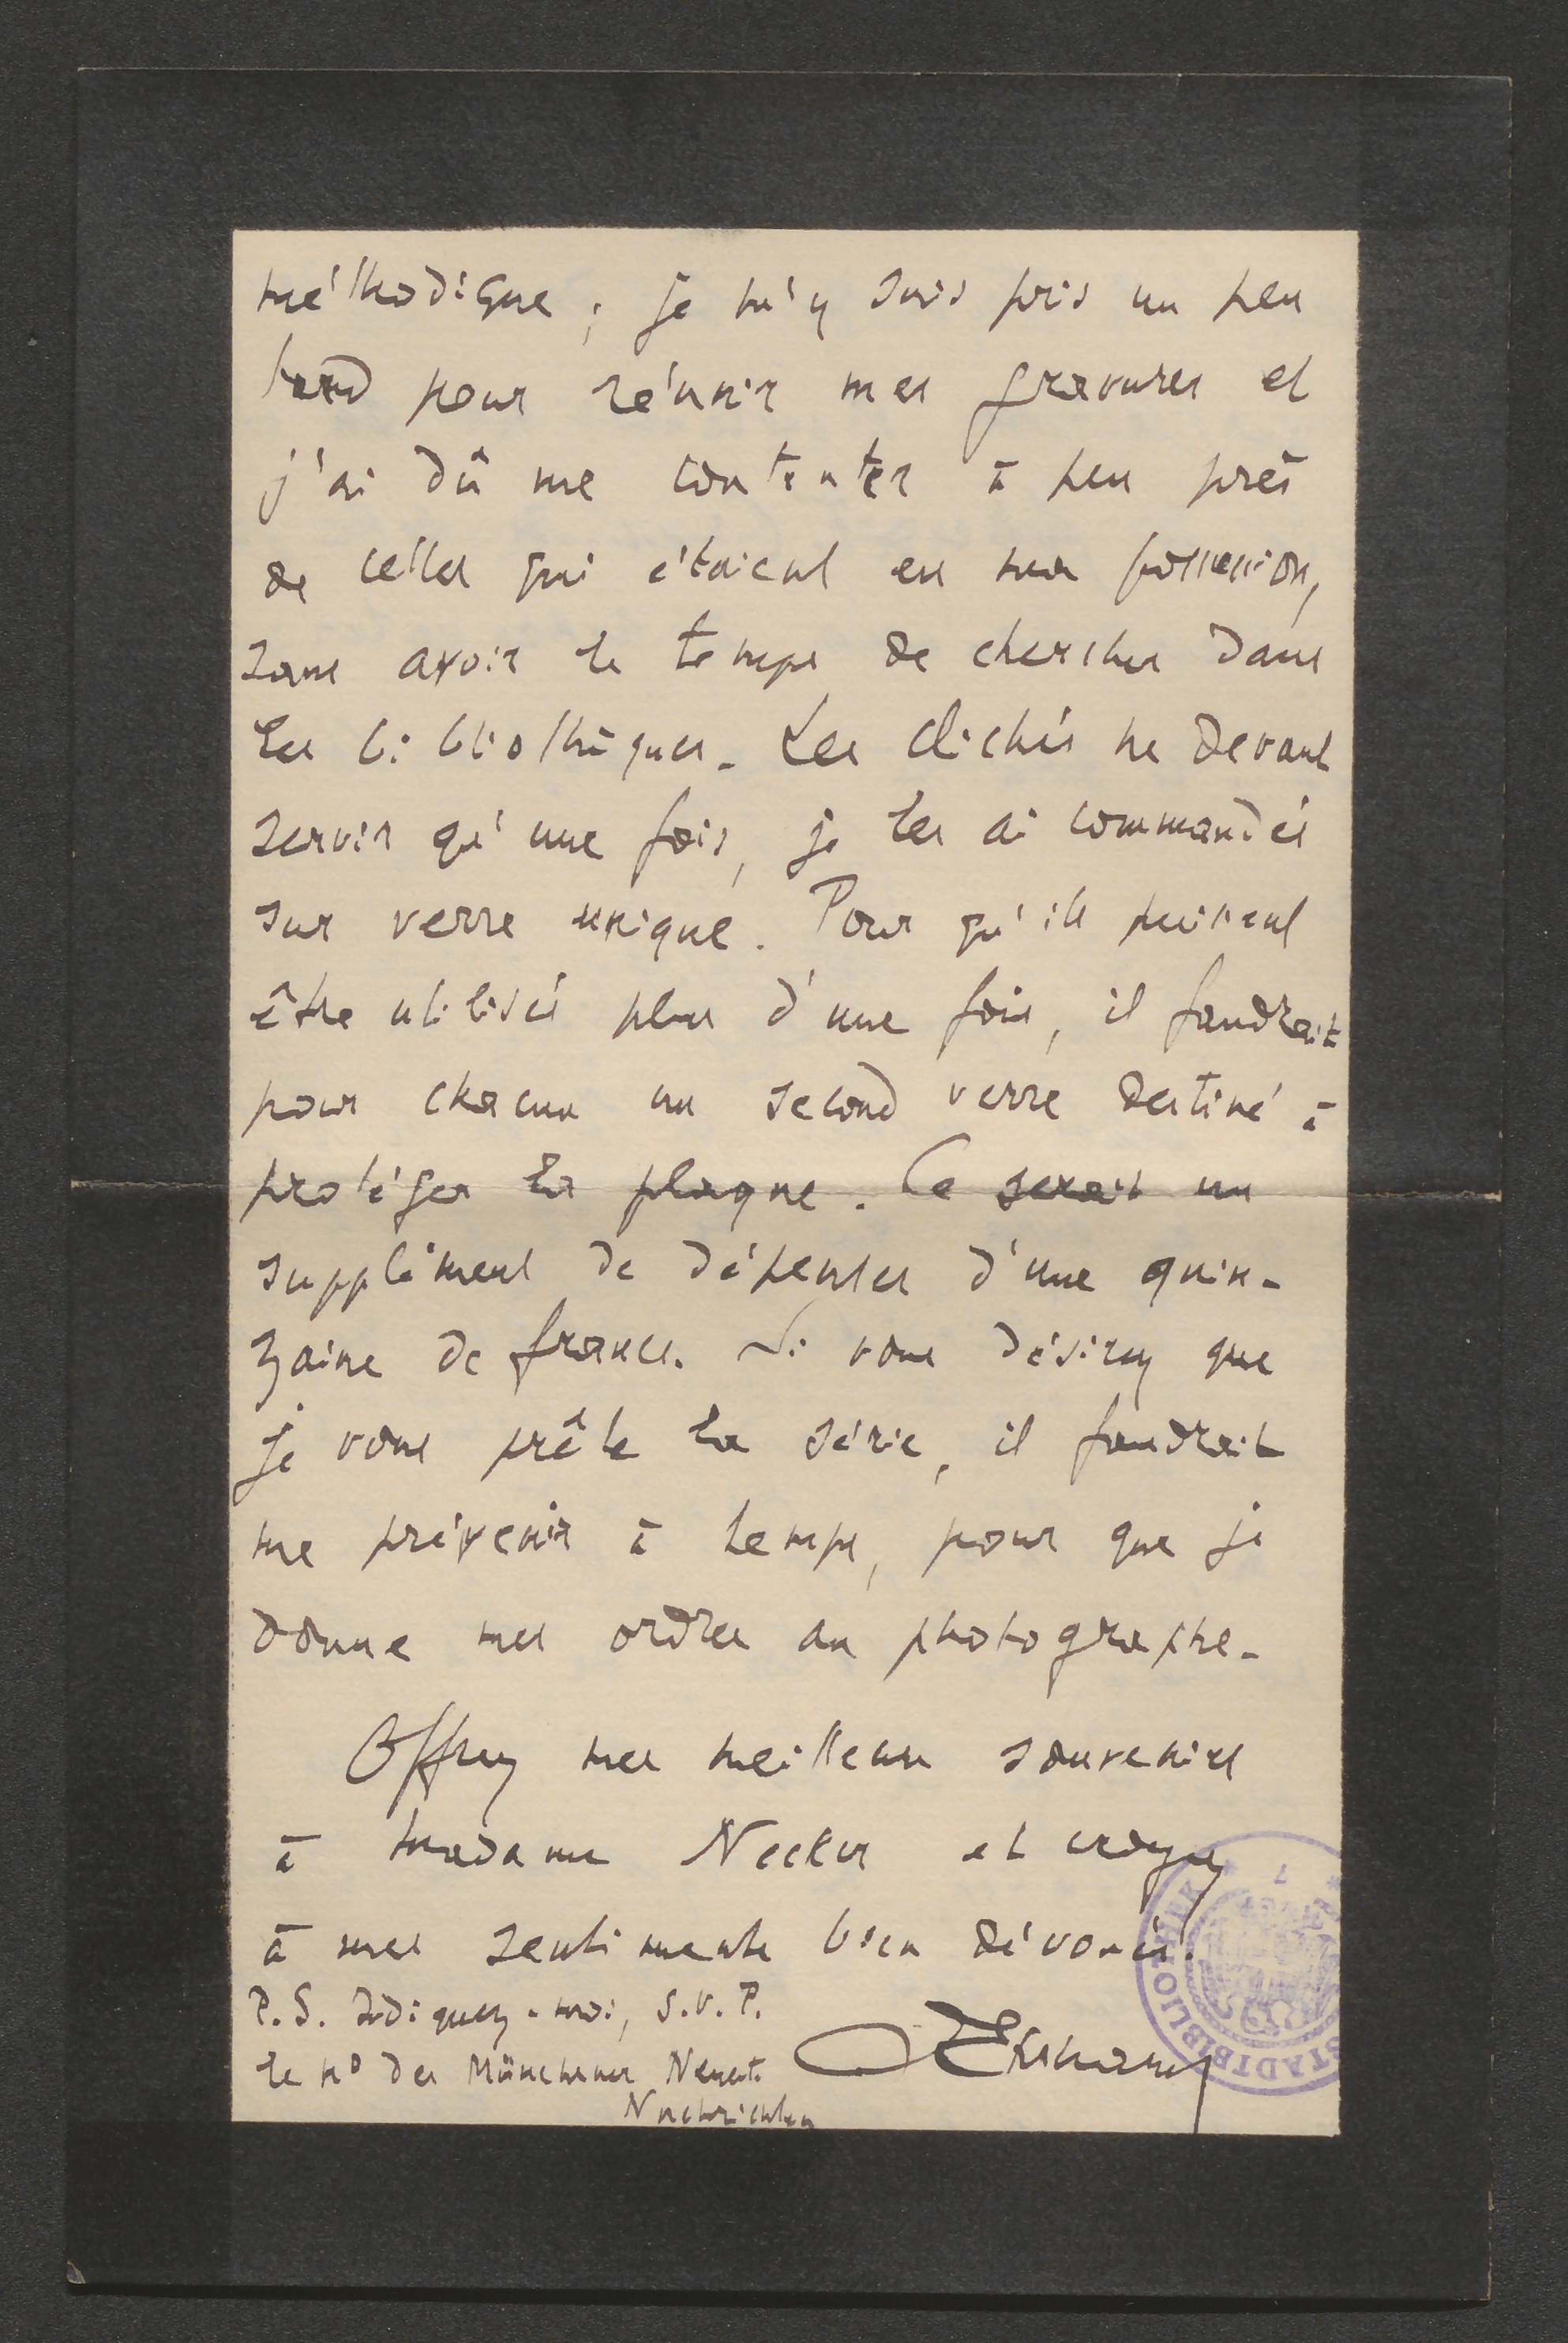 méthodique ; je m'y suis pris un peu
tard pour réunir mes gravures et
j'ai dû me contenter à peu près
de celles qui étaient en ma possession,
sans avoir le temps de chercher dans
les bibliothèques. Les clichés ne devant
servir qu'une fois, je les ai commandés
sur verre unique. Pour qu'ils puissent
être utilisés plus d'une fois, il faudrait
pour chacun un second verre destiné à
protéger la plaque. Ce serait un
supplément de dépenses d'une quin-
zaine de francs. Si vous désirez que
je vous prête la série, il faudrait
me prévenir à temps, pour que je
donne mes ordres au photographe.
Offrez mes meilleurs souvenirs
à Madame Necker et croyez
à mes sentiments bien dévoués.
P.S. Indiquez-moi, S.V.P.
le no des Münchener Neueste
Nachrichten
STADTBIBLIOTHEK